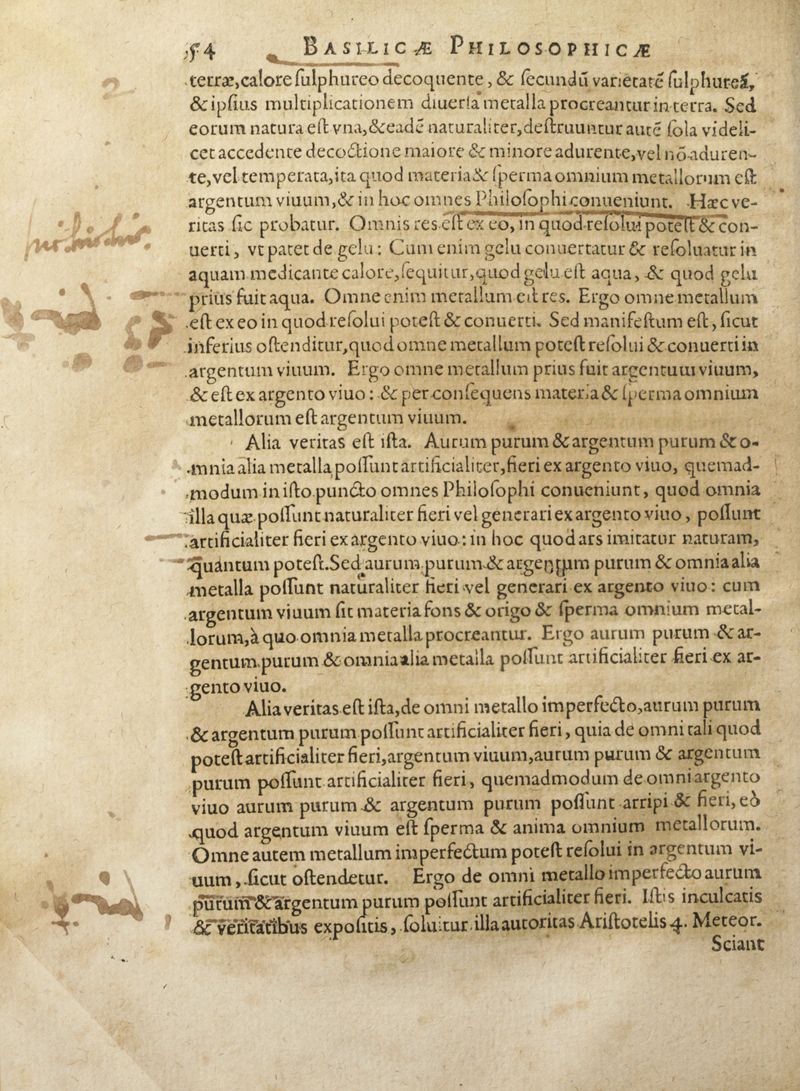 54 BASILICÆ PHILOSOPHICÆ
terræ,calore ſulphureo decoquente, & ſecundū varietatē ſulphureā,
& ipſius multiplicationem diuerſa metalla procreantur in terra. Sed
eorum natura eſt vna,& eadē naturaliter,deſtruuntur autē ſola videli-
cet accedente decoctione maiore & minore adurente,vel nō aduren-
te,vel temperata,ita quod materia & ſperma omnium metallorum eſt
argentum viuum,& in hoc omnes Philoſophi conueniunt. Hæc ve-
ritas ſic probatur. Omnis res eſt ex eo, in quod reſolui poteſt & con-
uerti, vt patet de gelu: Cum enim gelu conuertatur & reſoluatur in
aquam medicante calore,ſequitur,quod gelu eſt aqua, & quod gelu
prius fuit aqua. Omne enim metallum eſt res. Ergo omne metallum
eſt ex eo in quod reſolui poteſt & conuerti. Sed manifeſtum eſt, ſicut
inferius oſtenditur,quod omne metallum poteſt reſolui & conuerti in
argentum viuum. Ergo omne metallum prius fuit argentum viuum,
& eſt ex argento viuo: & per conſequens materia & ſperma omnium
metallorum eſt argentum viuum.
Alia veritas eſt iſta. Aurum purum & argentum purum & o-
mnia alia metalla poſſunt artificialiter,fieri ex argento viuo, quemad-
modum in iſto puncto omnes Philoſophi conueniunt, quod omnia
illa quæ poſſunt naturaliter fieri vel generari ex argento viuo, poſſunt
artificialiter fieri ex argento viuo: in hoc quod ars imitatur naturam,
quantum poteſt.Sed aurum purum & argentum purum & omnia alia
metalla poſſunt naturaliter fieri vel generari ex argento viuo: cum
argentum viuum ſit materia fons & origo & ſperma omnium metal-
lorum,à quo omnia metalla procreantur. Ergo aurum purum & ar-
gentum purum & omnia alia metalla poſſunt artificialiter fieri ex ar-
gento viuo.
Alia veritas eſt iſta,de omni metallo imperfecto,aurum purum
& argentum purum poſſunt artificialiter fieri, quia de omni tali quod
poteſt artificialiter fieri,argentum viuum,aurum purum & argentum
purum poſſunt artificialiter fieri, quemadmodum de omni argento
viuo aurum purum & argentum purum poſſunt arripi & fieri, eò
quod argentum viuum eſt ſperma & anima omnium metallorum.
Omne autem metallum imperfectum poteſt reſolui in argentum vi-
uum, ſicut oſtendetur. Ergo de omni metallo imperfecto aurum
purum & argentum purum poſſunt artificialiter fieri. Iſtis inculcatis
& veritatibus expoſitis, ſoluitur illa autoritas Ariſtotelis 4. Meteor.
Sciant